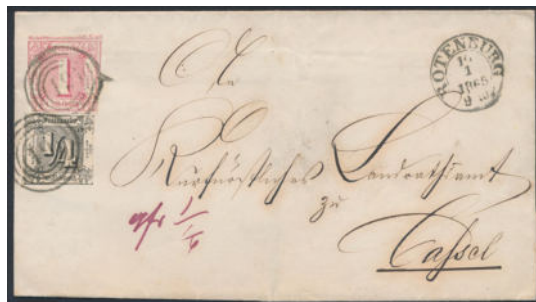 1
1/4
ROTENBURG
1
1865
An
Kurfürstliches Landrathsamt
zu
Cassel
1/6